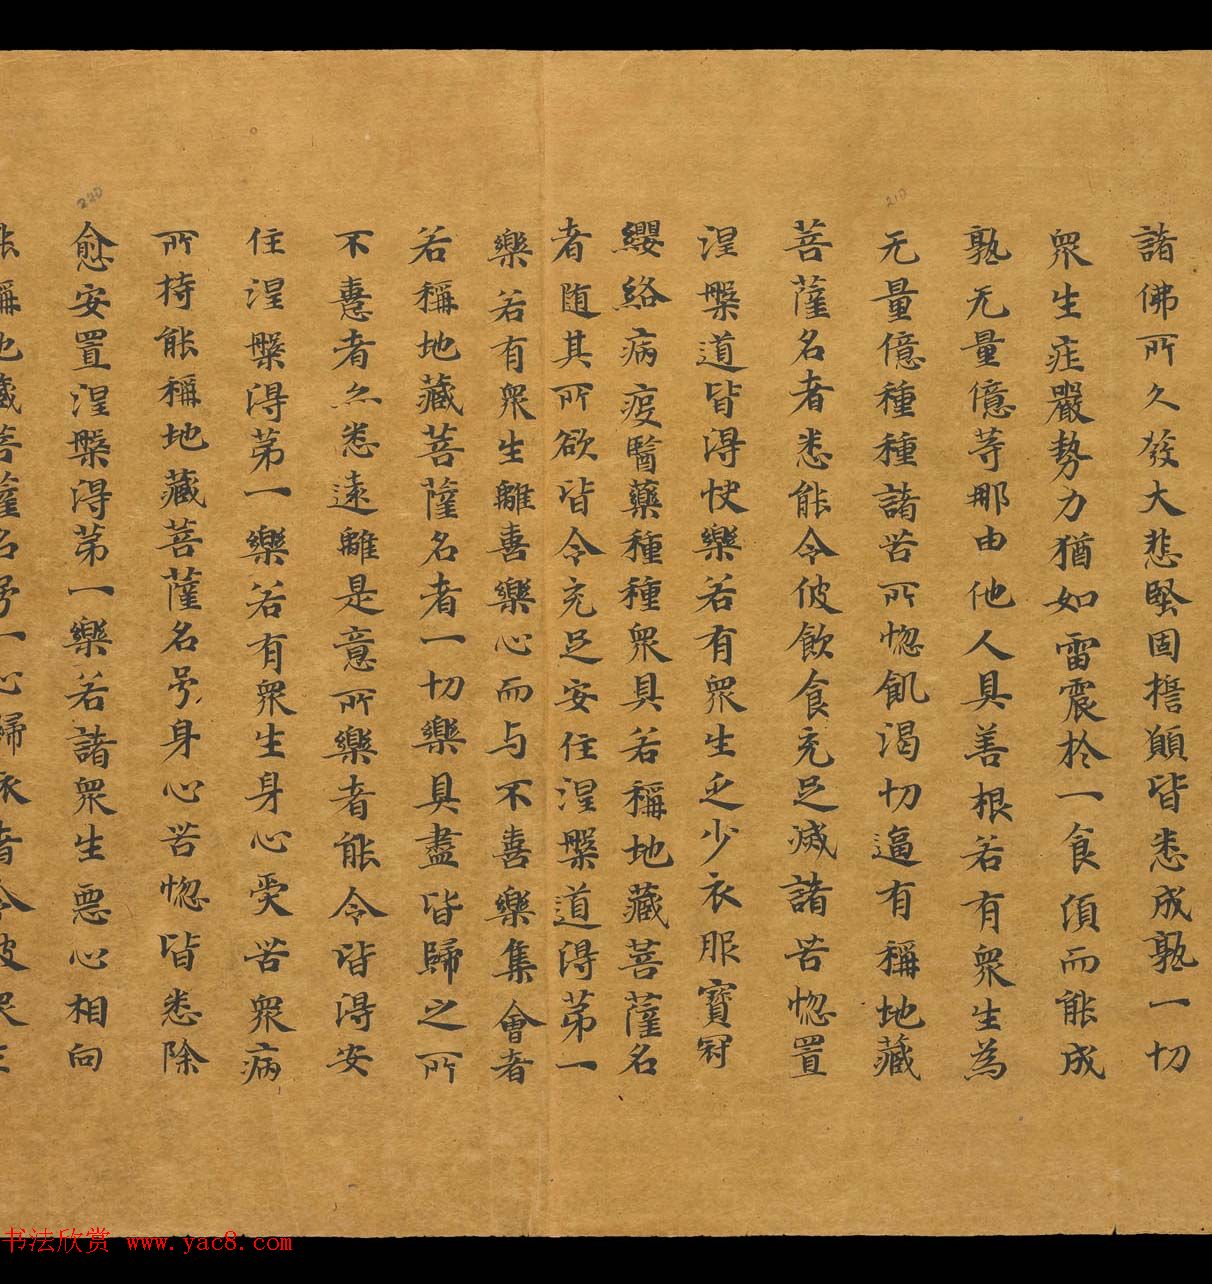 諸佛所久發大悲堅固擔願皆悉成熟一切
衆生㽵嚴勢力猶如雷震於一食湏而能成
熟无量億等那由他人具善根若有衆生為
无量億種種諸苦所惚飢渴切逼有稱地藏
菩薩名者悉能令彼飲食充足滅諸苦惚置
涅槃道皆得快樂若有衆生乏少衣服寶冠
纓絡病疫醫藥種種衆具若稱地藏菩薩名
者随其所欲皆令充足安住涅槃道得苐一
樂若有衆生離喜樂心而与不喜樂集會者
若稱地藏菩薩名者一切樂具盡皆歸之所
不憙者亦悉遠離是意所樂者能令皆得安
住涅槃得苐一樂若有衆生身心受苦衆病
所持能稱地藏菩薩名号身心苦惚皆悉除
愈安置涅槃得苐一樂若諸衆生惡心相向
能稱地藏菩薩名号一心歸依者令彼衆生
220
210
书法欣赏 www.yac8.com